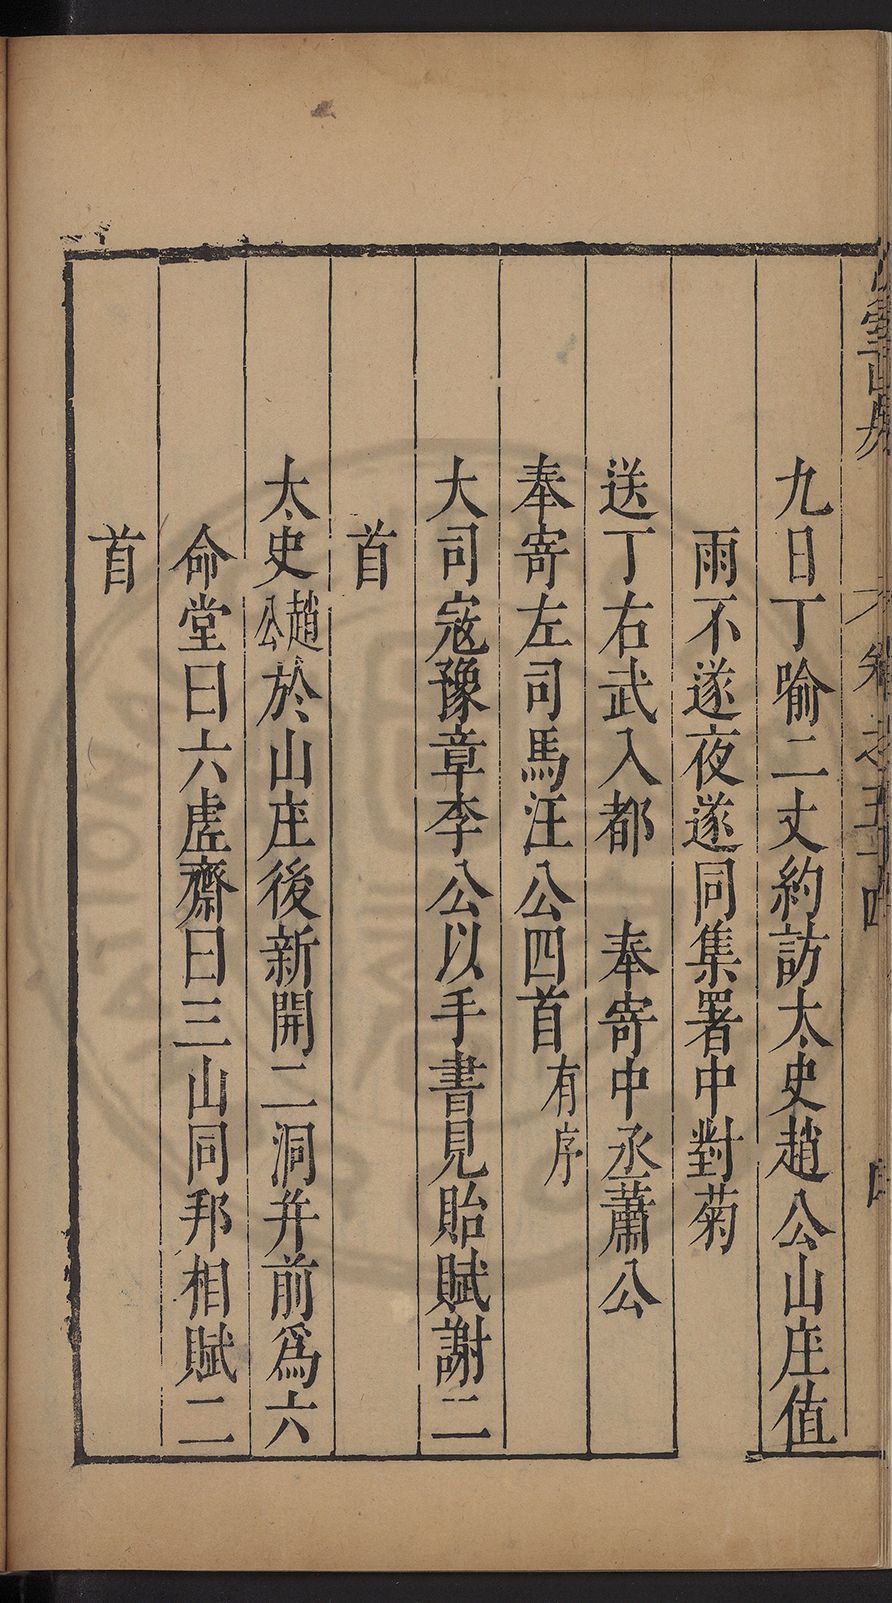 九日丁喻二丈約訪太史趙公山庄值
雨不遂夜遂同集署中對菊
送丁右武入都　奉寄中丞蕭公
奉寄左司馬汪公四首有序
大司寇豫章李公以手書見貽賦謝二
首
太史趙公於山庄後新開二洞并前爲六
命堂曰六虛齋曰三山同邦相賦二
首